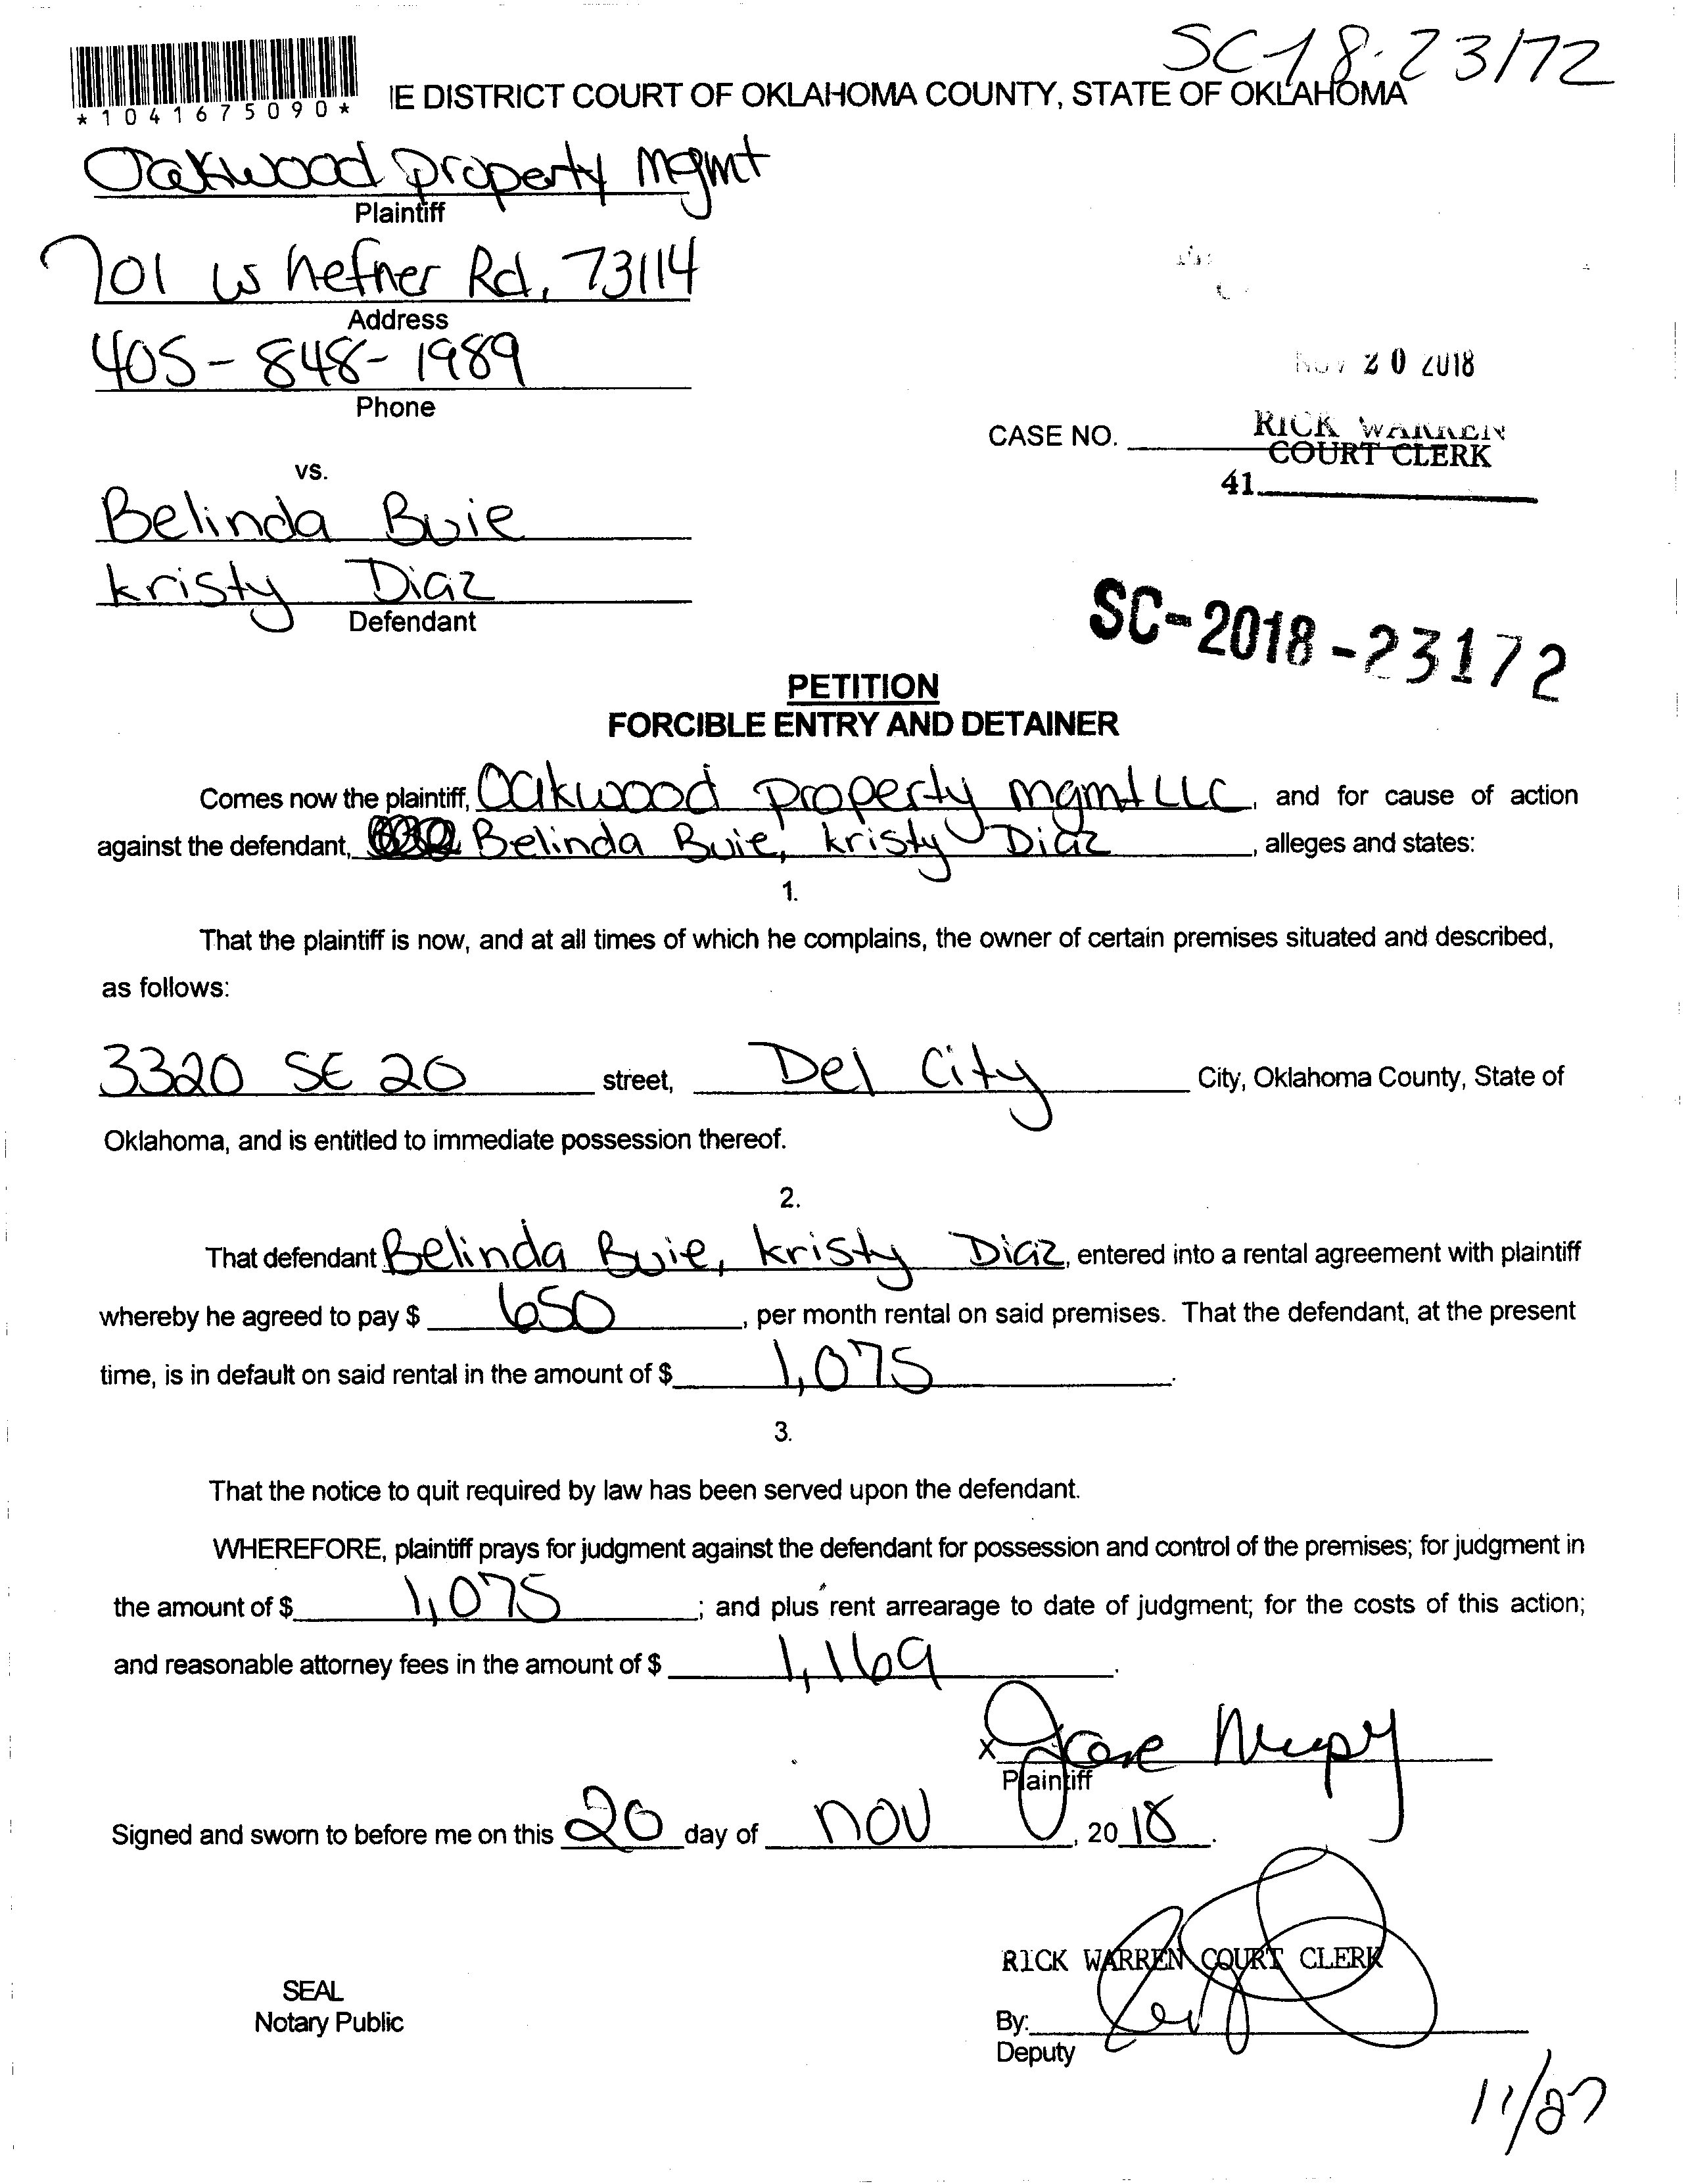 SC18-23172
*1041675090*
IE DISTRICT COURT OF OKLAHOMA COUNTY, STATE OF OKLAHOMA
Oakwood property mgmt
Plaintiff
701 W hefner Rd, 73114
Address
405-848-1989
Phone
NOV 20 2018
RICK WARREN
COURT CLERK
CASE NO.
41
vs.
Belinda Buie
kristy Diaz
Defendant
SC-2018-23172
PETITION
FORCIBLE ENTRY AND DETAINER
Comes now the plaintiff, Oakwood property mgmt LLC, and for cause of action
against the defendant, Belinda Buie, kristy Diaz, alleges and states:
1.
That the plaintiff is now, and at all times of which he complains, the owner of certain premises situated and described,
as follows:
3320 SE 20 street, Del City City, Oklahoma County, State of
Oklahoma, and is entitled to immediate possession thereof.
2.
That defendant Belinda Buie, kristy Diaz, entered into a rental agreement with plaintiff
whereby he agreed to pay $ 650, per month rental on said premises. That the defendant, at the present
time, is in default on said rental in the amount of $ 1,075.
3.
That the notice to quit required by law has been served upon the defendant.
WHEREFORE, plaintiff prays for judgment against the defendant for possession and control of the premises; for judgment in
the amount of $ 1,075; and plus rent arrearage to date of judgment; for the costs of this action;
and reasonable attorney fees in the amount of $ 1,169.
X
Plaintiff
Signed and sworn to before me on this 20 day of nov, 20 18.
RICK WARREN COURT CLERK
SEAL
Notary Public
By:
Deputy
11/27